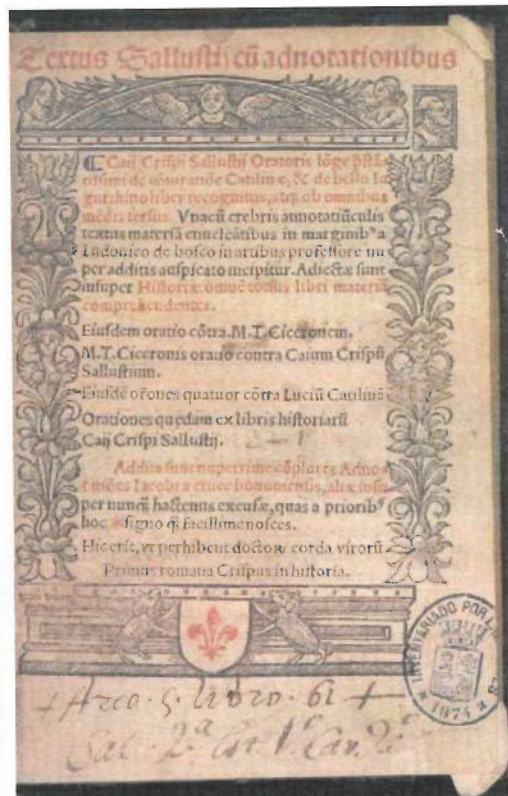 Textus Sallustij cū adnotationibus
Caij Crispi Sallustij Oratoris lōge pſtā
tiſſimi de cōiuratiōe Catilinæ, & de bello Iu
gurthino liber recognitus, atq̃ ob omnibus
mēdis terſus. Vnacū crebris annotatiūculis
textus materiā enucleātibus in marginibꝰ a
Ludouico de boſco in artibus profeſſore nu
per additis auſpicato incipitur. Adiectæ ſunt
inſuper Hiſtoriæ omnē totius libri materiā
comprehendentes.
Eiuſdem oratio cōtra.M.T.Ciceronem.
M.T.Ciceronis oratio contra Caium Criſpū
Salluſtium.
Eiuſdē orōnes quatuor cōtra Luciū Catilinā
Orationes quędam ex libris hiſtoriarū
Caij Criſpi Salluſtij.
Addite ſunt nuperrime cōplures Adno
tatiōes Iacobi a cruce bononienſis, aliæ inſu
per nunq̃ hactenus excuſæ, quas a prioribꝰ
hoc ſigno q̃ facillime noſces.
Hic erit, vt perhibent doctorꝝ corda virorū
Primus romana Criſpus in hiſtoria.
INVENTARIADO POR
1974
+ Arco . 5 . libro . 61 +
Sal . 2ª Est 1º Cax. 2º